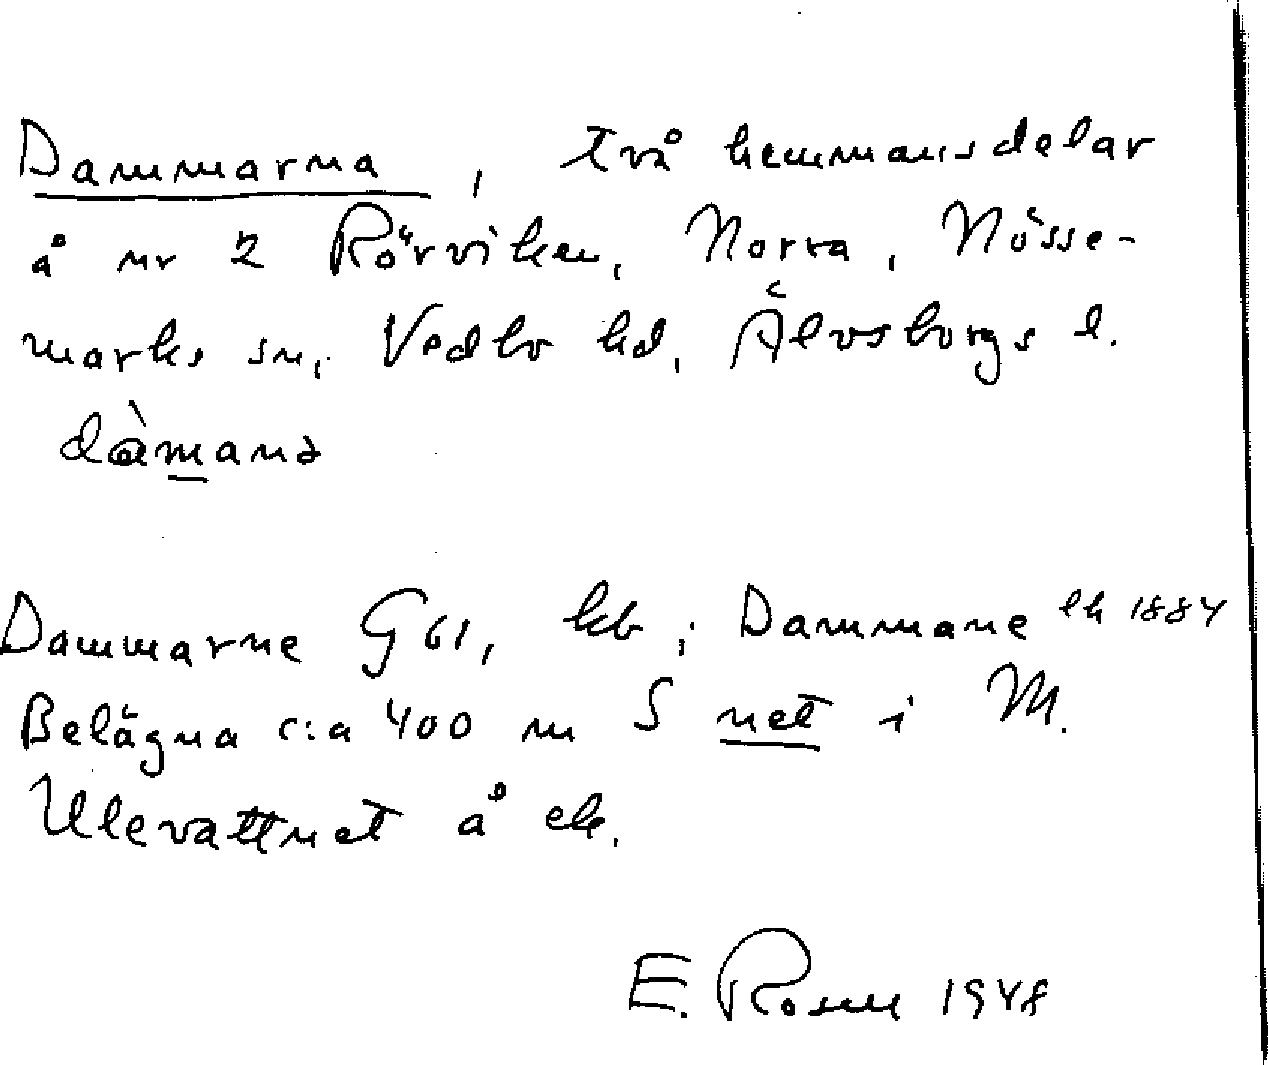 Dammarna, två hemmansdelar
å nr 2 Rörviken, Norra, Nösse-
marks sn, Vedbo hd, Älvsborgs l.
dàmanə
Dammarne G 61, kb; Dammane ek 1884
Belägna c:a 400 m S net i M.
Ulevattnet å ek.
E. Rosén 1948